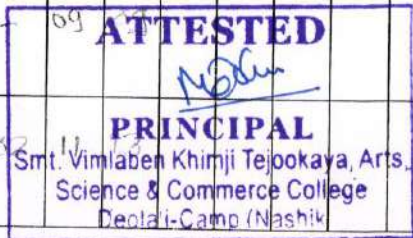 09
ATTESTED
PRINCIPAL
Smt. Vimlaben Khimji Tejookaya, Arts,
Science & Commerce College
Deolali-Camp (Nashik